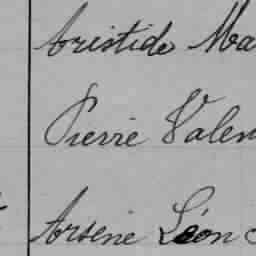 Aristide Ma
Pierre Valen
Arsène Léon